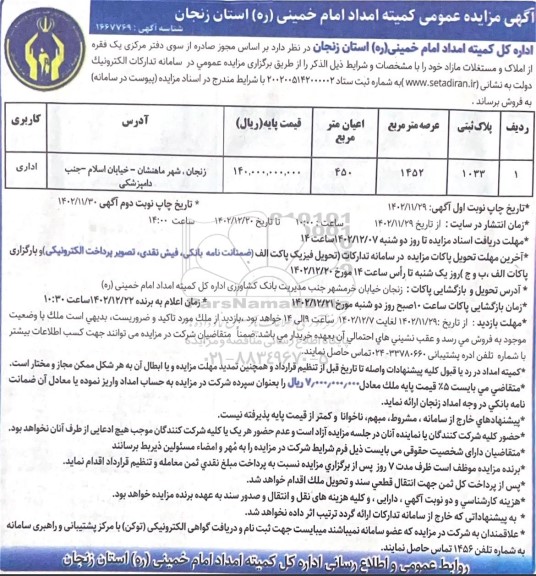 آگهی مزایده عمومی کمیته امداد امام خمینی (ره) استان زنجان
شناسه آگهی: ۱۶۶۷۷۶۹
اداره کل کمیته امداد امام خمینی(ره) استان زنجان در نظر دارد بر اساس مجوز صادره از سوی دفتر مرکزی یک فقره
از املاک و مستغلات مازاد خود را با مشخصات و شرایط ذیل الذکر را از طریق برگزاری مزایده عمومی در سامانه تدارکات الکترونیک
دولت به نشانی (www.setadiran.ir) به شماره ثبت ستاد ۲۰۰۲۰۰۵۱۴۲۰۰۰۰۰۲ با شرایط مندرج در اسناد مزایده (پیوست در سامانه)
به فروش برساند.
ردیف پلاک ثبتی عرصه متر مربع اعیان متر مربع قیمت پایه(ریال) آدرس کاربری
۱ ۱۰۳۳ ۱۴۵۲ ۴۵۰ ۱۴۰.۰۰۰.۰۰۰.۰۰۰ زنجان، شهر ماهنشان -خیابان اسلام -جنب دامپزشکی اداری
*تاریخ چاپ نوبت اول آگهی: ۱۴۰۲/۱۱/۲۹ *تاریخ چاپ نوبت دوم آگهی: ۱۴۰۲/۱۱/۳۰
*زمان انتشار در سایت : از تاریخ ۱۴۰۲/۱۱/۲۹ ساعت: ۱۰:۰۰ تا تاریخ ۱۴۰۲/۱۲/۲۰ ساعت ۱۴:۰۰
*مهلت دریافت اسناد مزایده تا روز دو شنبه ۱۴۰۲/۱۲/۰۷ساعت ۱۴
*آخرین مهلت تحویل پاکات مزایده در سامانه تدارکات (تحویل فیزیک پاکت الف (ضمانت نامه بانکی، فیش نقدی، تصویر پرداخت الکترونیکی)و بارگزاری
پاکات الف ،ب و ج )روز یک شنبه تا رأس ساعت ۱۴ مورخ ۱۴۰۲/۱۲/۲۰
* آدرس تحویل و بازگشایی پاکات : زنجان خیابان خرمشهر جنب مدیریت بانک کشاورزی اداره کل کمیته امداد امام خمینی (ره)
*زمان بازگشایی پاکات ساعت ۱۰صبح روز دو شنبه مورخ ۱۴۰۲/۱۲/۲۱ * زمان اعلام به برنده ۱۴۰۲/۱۲/۲۲ساعت ۱۰:۳۰
* مهلت بازدید : از تاریخ ۱۴۰۲/۱۱/۲۹ لغایت ۱۴۰۲/۱۲/۷ ساعت ۹الی ۱۴ خواهد بود. بازدید از ملک مورد تاکید و ضروریست، بدیهی است ملک با وضعیت
موجود به فروش می رسد و عقب نشینی های احتمالی آن بعهده خریدار می باشد.ضمناً متقاضیان شرکت در مزایده می توانند جهت کسب اطلاعات بیشتر
با شماره تلفن اداره پشتیبانی ۳۳۷۷۸۰۶۶-۰۲۴ تماس حاصل نمایند.
*کمیته امداد در رد یا قبول کلیه پیشنهادات واصله تا تاریخ قبل از تنظیم قرارداد و همچنین تمدید مهلت مزایده و یا ابطال آن به هر شکل ممکن مجاز و مختار است.
*متقاضی می بایست ۵٪ قیمت پایه ملک معادل ۷/۰۰۰/۰۰۰/۰۰۰ ریال را بعنوان سپرده شرکت در مزایده به حساب امداد واریز نموده یا معادل آن ضمانت
نامه بانکی در وجه امداد زنجان ارائه نماید.
*پیشنهادهای خارج از سامانه ، مشروط، مبهم، ناخوانا و کمتر از قیمت پایه پذیرفته نیست.
*حضور کلیه شرکت کنندگان یا نماینده آنان در جلسه مزایده آزاد است و عدم حضور هر یک یا کلیه شرکت کنندگان موجب هیچ ادعایی از طرف آنان نخواهد بود.
*متقاضیان دارای شخصیت حقوقی می بایست ذیل فرم شرایط شرکت در مزایده را به مُهر و امضاء مسئولین ذیربط برسانند
*برنده مزایده موظف است ظرف مدت ۷ روز پس از برگزاری مزایده نسبت به پرداخت مبلغ نقدی ثمن معامله و تنظیم قرارداد اقدام نماید.
*پس از پرداخت کل ثمن جهت انتقال قطعی سند و تحویل ملک اقدام خواهد شد.
*هزینه کارشناسی و دو نوبت آگهی ، دارایی ، و کلیه هزینه های نقل و انتقال و صدور سند به عهده برنده مزایده خواهد بود.
* به پیشنهاداتی که خارج از سامانه تدارکات ارائه گردد ترتیب اثر داده نخواهد شد.
* علاقمندان به شرکت در مزایده که عضو سامانه نمیباشند میبایست جهت ثبت نام و دریافت گواهی الکترونیکی (توکن) با مرکز پشتیبانی و راهبری سامانه
به شماره تلفن ۱۴۵۶ تماس حاصل نمایند.
روابط عمومی و اطلاع رسانی اداره کل کمیته امداد امام خمینی (ره) استان زنجان